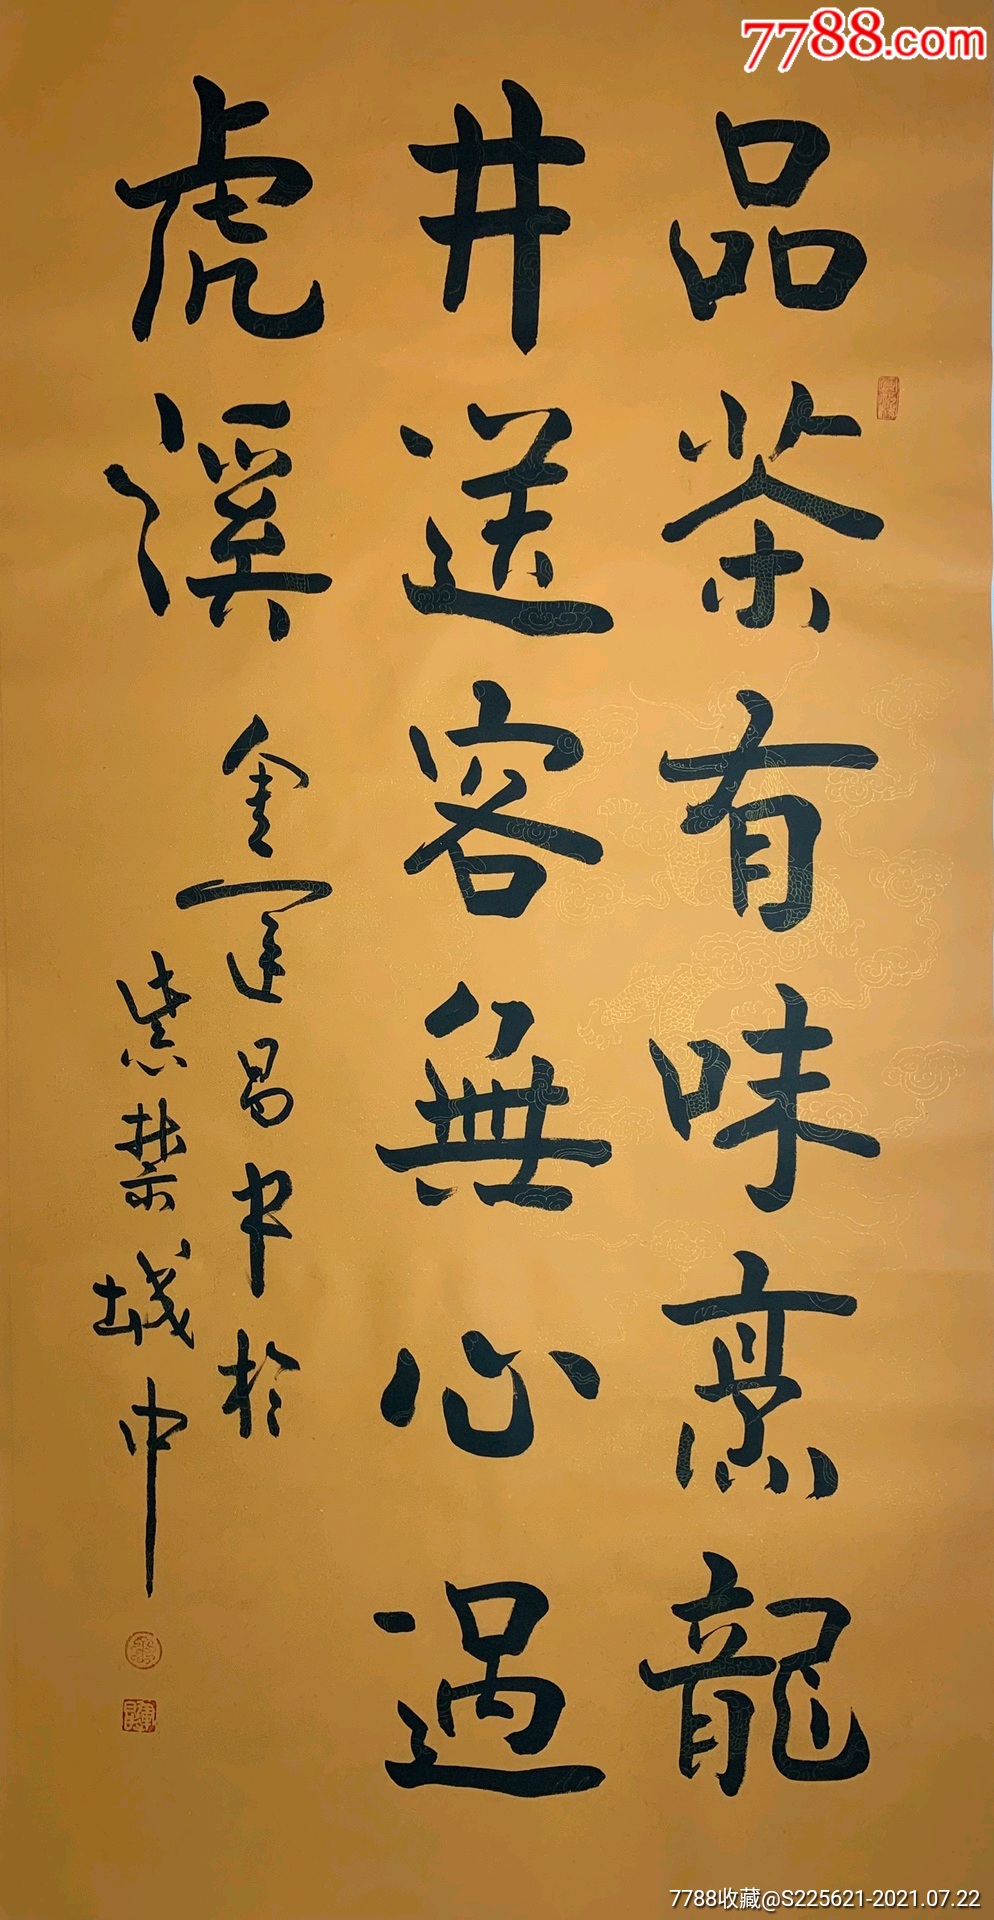 7788.com
品茶有味烹龍
井送客無心過
虎溪
金運昌書於
紫禁城中
7788收藏@S225621-2021.07.22